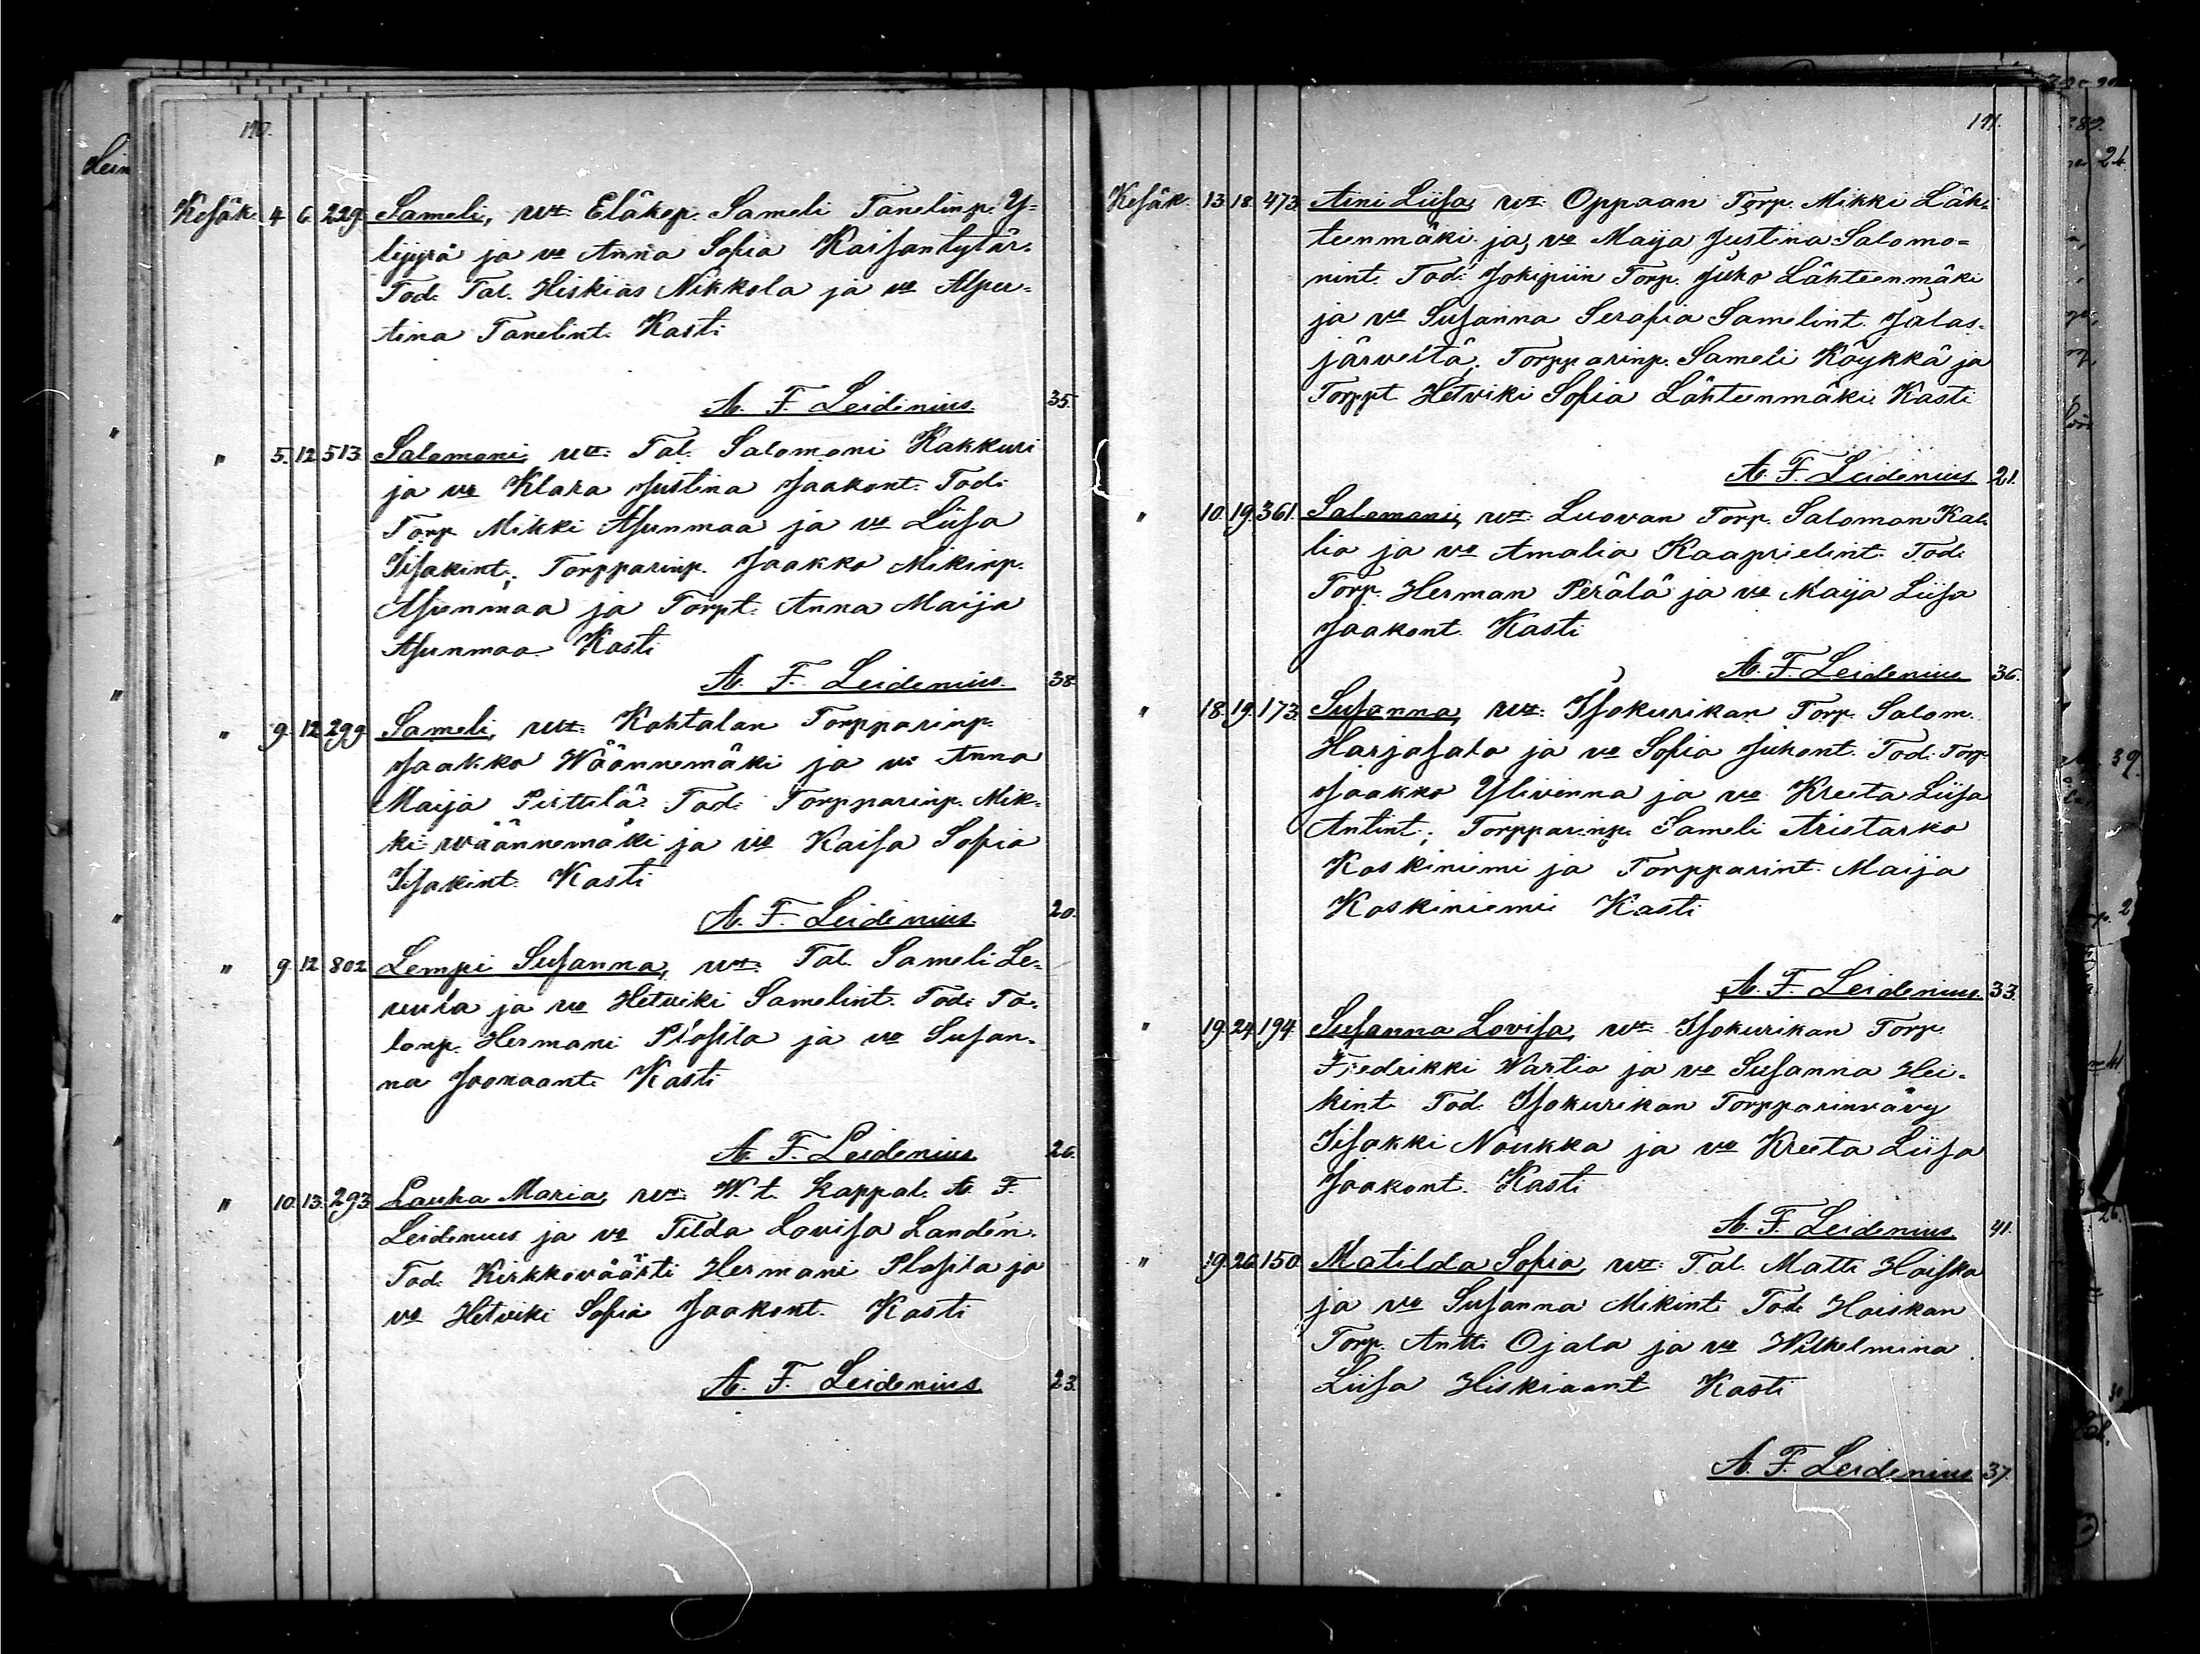 110.
Kesäk. 4. 6. 229. Sameli, vt: Eläkep. Sameli Tanelinp. Y=
lijyrä ja vo Anna Sofia Kaisantytär.
Tod. Tal. Hiskias Nikkola ja vo Alper=
tina Tanelint. Kasti
A. F. Leidenius. 35.
" 5. 12. 513. Salomoni, vt: Tal. Salomoni Kakkuri
ja vo Klara Justina Jaakont. Tod:
Torp. Mikki Asunmaa ja vo Liisa
Iisakint.; Torpparinp. Jaakko Mikinp.
Asunmaa ja Torpt. Anna Maija
Asunmaa. Kasti
A. F. Leidenius. 38.
" 9. 12. 299. Sameli, vt: Kohtalan Torpparinp.
Jaakko Wäännemäki ja vo Anna
Maija Pirttilä. Tod: Torpparinp. Mik=
ki wäännemäki ja vo Kaisa Sofia
Iisakint. Kasti
A. F. Leidenius. 20.
" 9. 12. 802. Lempi Susanna, vt: Tal. Sameli Le=
ja vo Hetviki Samelint. Tod: Ta=
lonp. Hermani Plosila ja vo Susan=
na Joonaant. Kasti
A. F. Leidenius 26.
" 10. 13. 293. Lauha Maria, vt: W. t. Kappal. A. F.
Leidenius ja vo Tilda Lovisa Landén.
Tod. Kirkkoväärti Hermani Plosila ja
vo Hetviki Sofia Jaakont. Kasti
A. F. Leidenius 23.
111.
Kesäk. 13. 18. 473. Aini Liisa, vt: Oppaan Torp. Mikki Läh=
teenmäki ja vo Maija Justina Salomo=
nint. Tod: Jokipiin Torp. Juho Lähteenmäki
ja vo Susanna Serafia Samelint. Jalas=
järveltä; Torpparinp. Sameli Köykkä ja
Torppt. Hetviki Sofia Lähteenmäki. Kasti
A. F. Leidenius. 21.
" 10. 19. 361. Salomoni, vt: Luovan Torp. Salomon Kal=
lio ja vo Amalia Kaaprielint. Tod:
Torp. Herman Perälä ja vo Maija Liisa
Jaakont. Kasti
A. F. Leidenius 36.
" 18. 19. 173. Susanna, vt: Isokurikan Torp. Salom.
Harjasalo ja vo Sofia Juhont. Tod: Torp.
Jaakko Ylivinna ja vo Kreeta Liisa
Antint.; Torpparinp. Sameli Aristarko
Koskiniemi ja Torpparint. Maija
Koskiniemi Kasti
A. F. Leidenius. 33.
" 19. 24. 194. Susanna Lovisa, vt: Isokurikan Torp.
Fredrikki Wartia ja vo Susanna Hei=
kint. Tod. Isokurikan Torpparinvävy
Iisakki Nöukka ja vo Kreeta Liisa
Jaakont. Kasti
A. F. Leidenius. 41.
" 19. 26. 150. Matilda Sofia, vt: Tal. Matti Hoiska
ja vo Susanna Mikint. Tod: Hoiskan
Torp. Antti Ojala ja vo Wilhelmina
Liisa Hiskiaant Kasti
A. F. Leidenius 37.